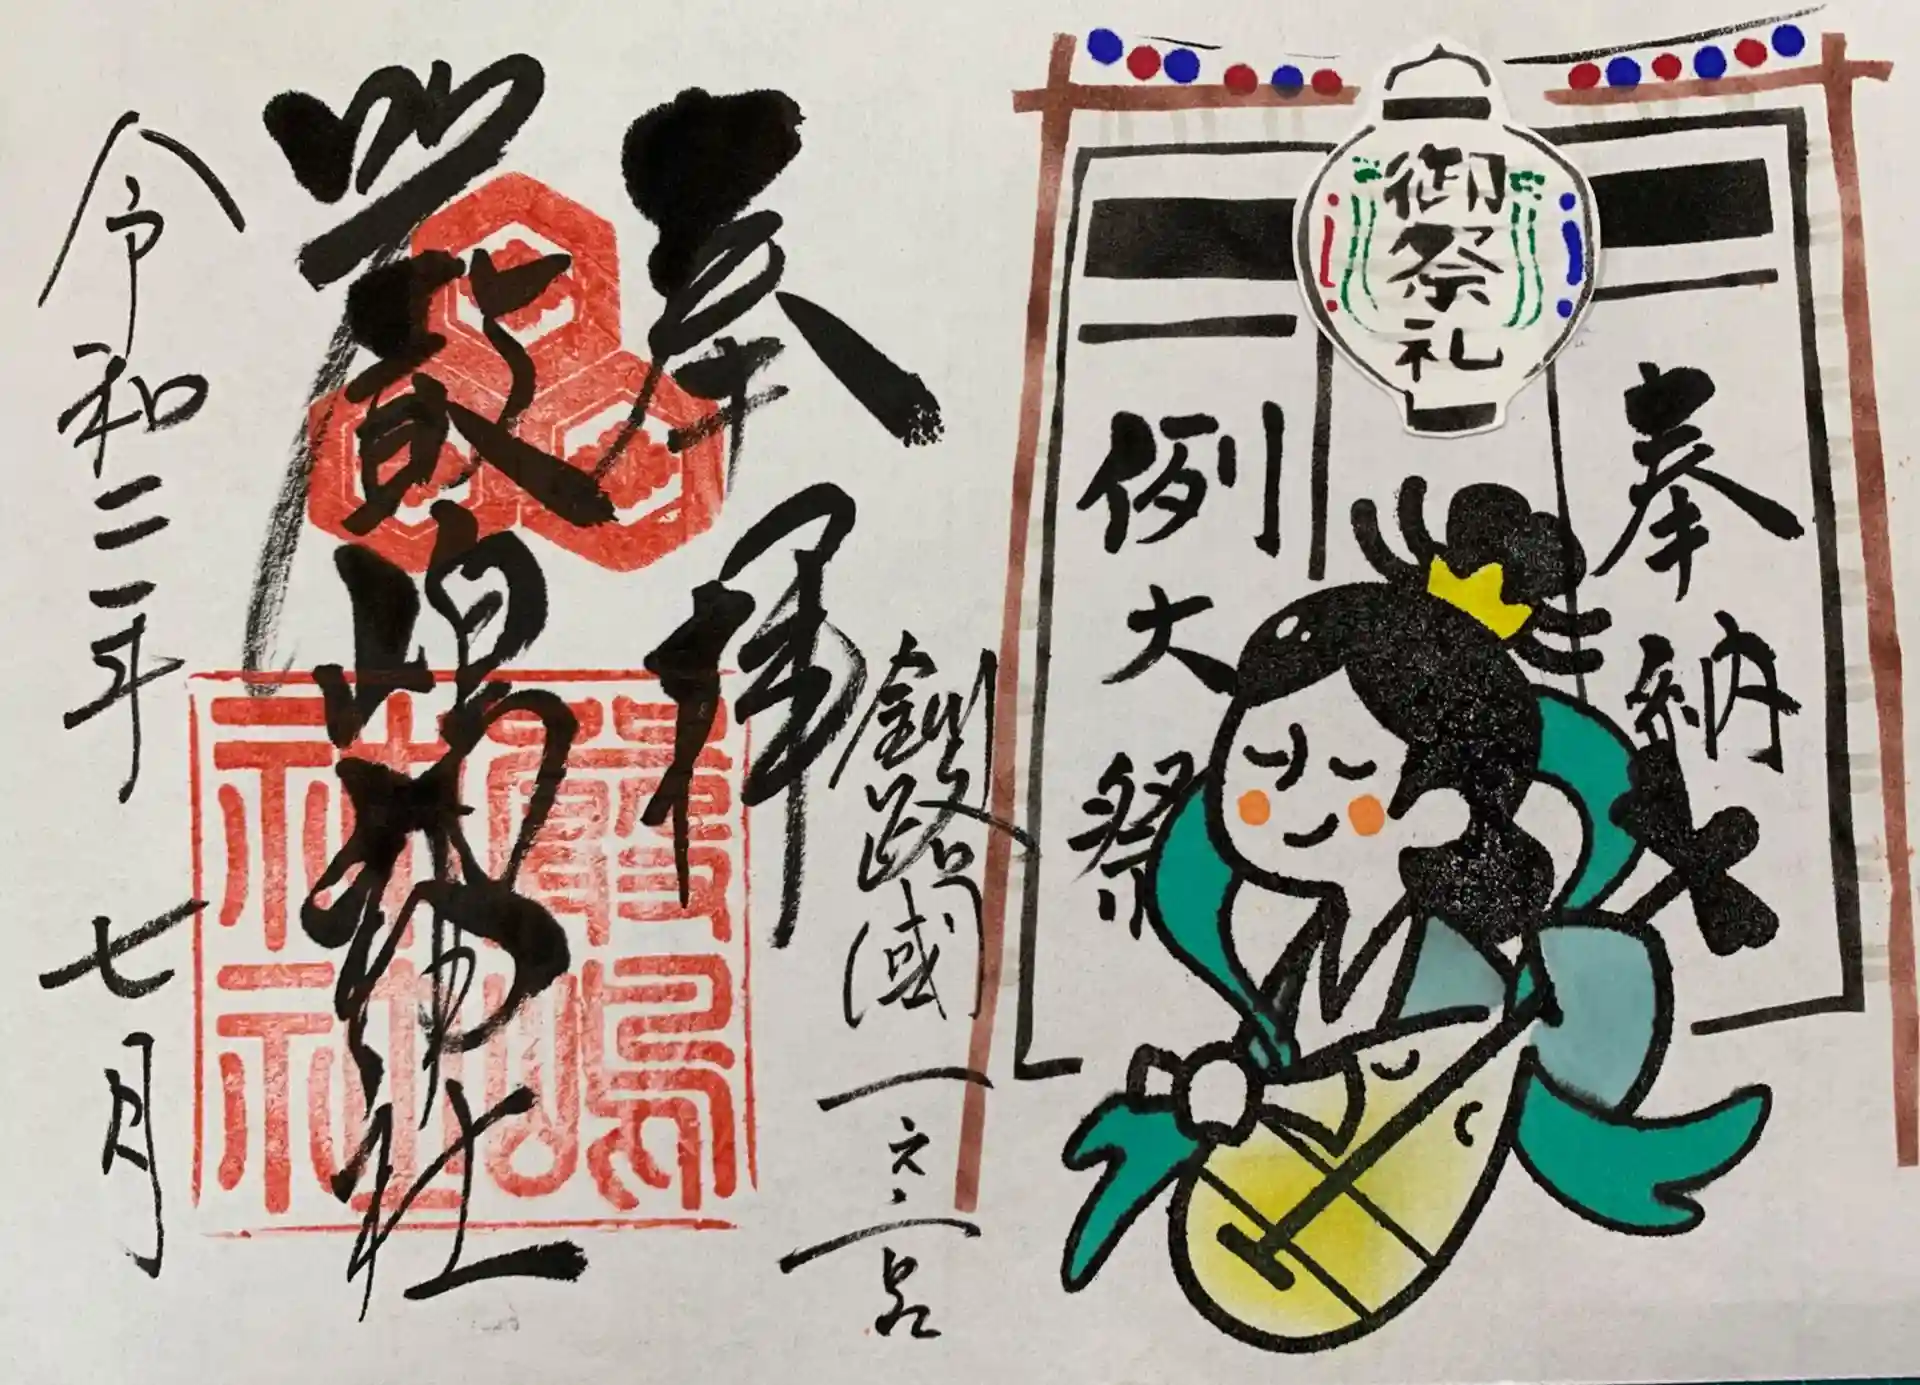 奉納
御祭礼
例大祭
釧路國一之宮
奉拝
嚴嶋神社
嚴嶋
神社
令和二年
七月